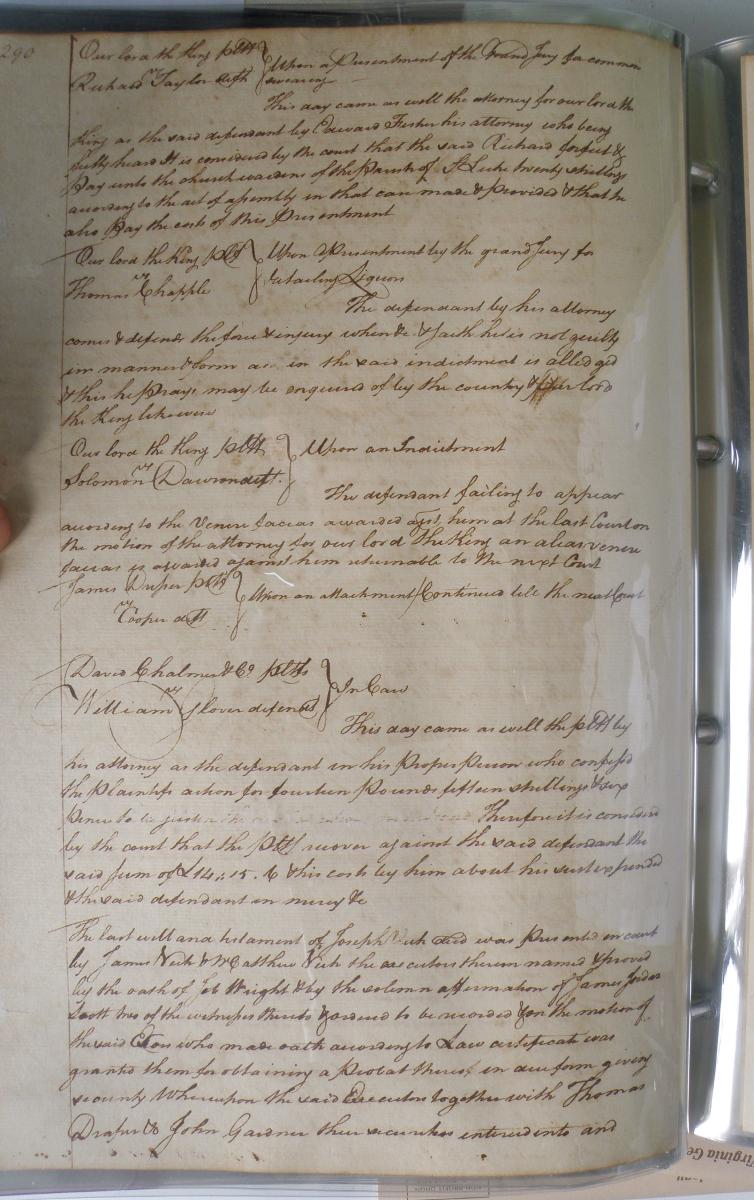 290
Our lord the King pltff } Upon a Presentment of the Grand Jury for common
Richard Taylor deft } swearing
This day came as well the attorney for our lord the
King as the said defendant by Edward Fisher his attorney who being
fully heard It is considered by the court that the said Richard forfeit &
Pay unto the church wardens of the Parish of St Luke twenty shillings
according to the act of assembly in that case made & provided & that he
also Pay the costs of this Presentment
Our lord the King pltf } Upon a Presentment by the grand Jury for
vs
Thomas Chapple } retailing Liquors
The defendant by his attorney
comes & defends the force & injury when &c & saith he is not guilty
in manner & form as in the said indictment is alledged
& this he Prays may be enquired of by the country & our lord
the King likewise
Our lord the King pltff } Upon an Indictment
vs
Solomon Dawson deft
The defendant failing to appear
according to the Venire facias awarded agst him at the last Court on
the motion of the attorney for our lord the King an alias venire
facias is awarded against him returnable to the next Court
James Druper pltf } Upon an attachment / Continued till the next Court
vs
Cooper deft
David Chalmers & Co pltffs } In Case
vs
William Glover defendt
This day came as well the pltff by
his attorney as the defendant in his Proper Person who confessd
the plaintifs action for fourteen Pounds fifteen shillings & six
Pence to be Therefore it is considered
by the court that the pltff recover against the said defendant the
said sum of £14..15.6 & his costs by him about his suit expended
& the said defendant in mercy &c
The last will and testament of Joseph decd was Presented in court
by James & Matthew the executors therein named & proved
by the oath of Job Wright & by the solemn affirmation of James Jordan
Scott two of the witnesses thereto & ordered to be recorded & on the motion of
the said Exors who made oath according to Law certificate was
granted them for obtaining a Probat thereof in due form giving
security Whereupon the said Executors together with Thomas
Draper & John Gardner their securities entered into and
Virginia Ge